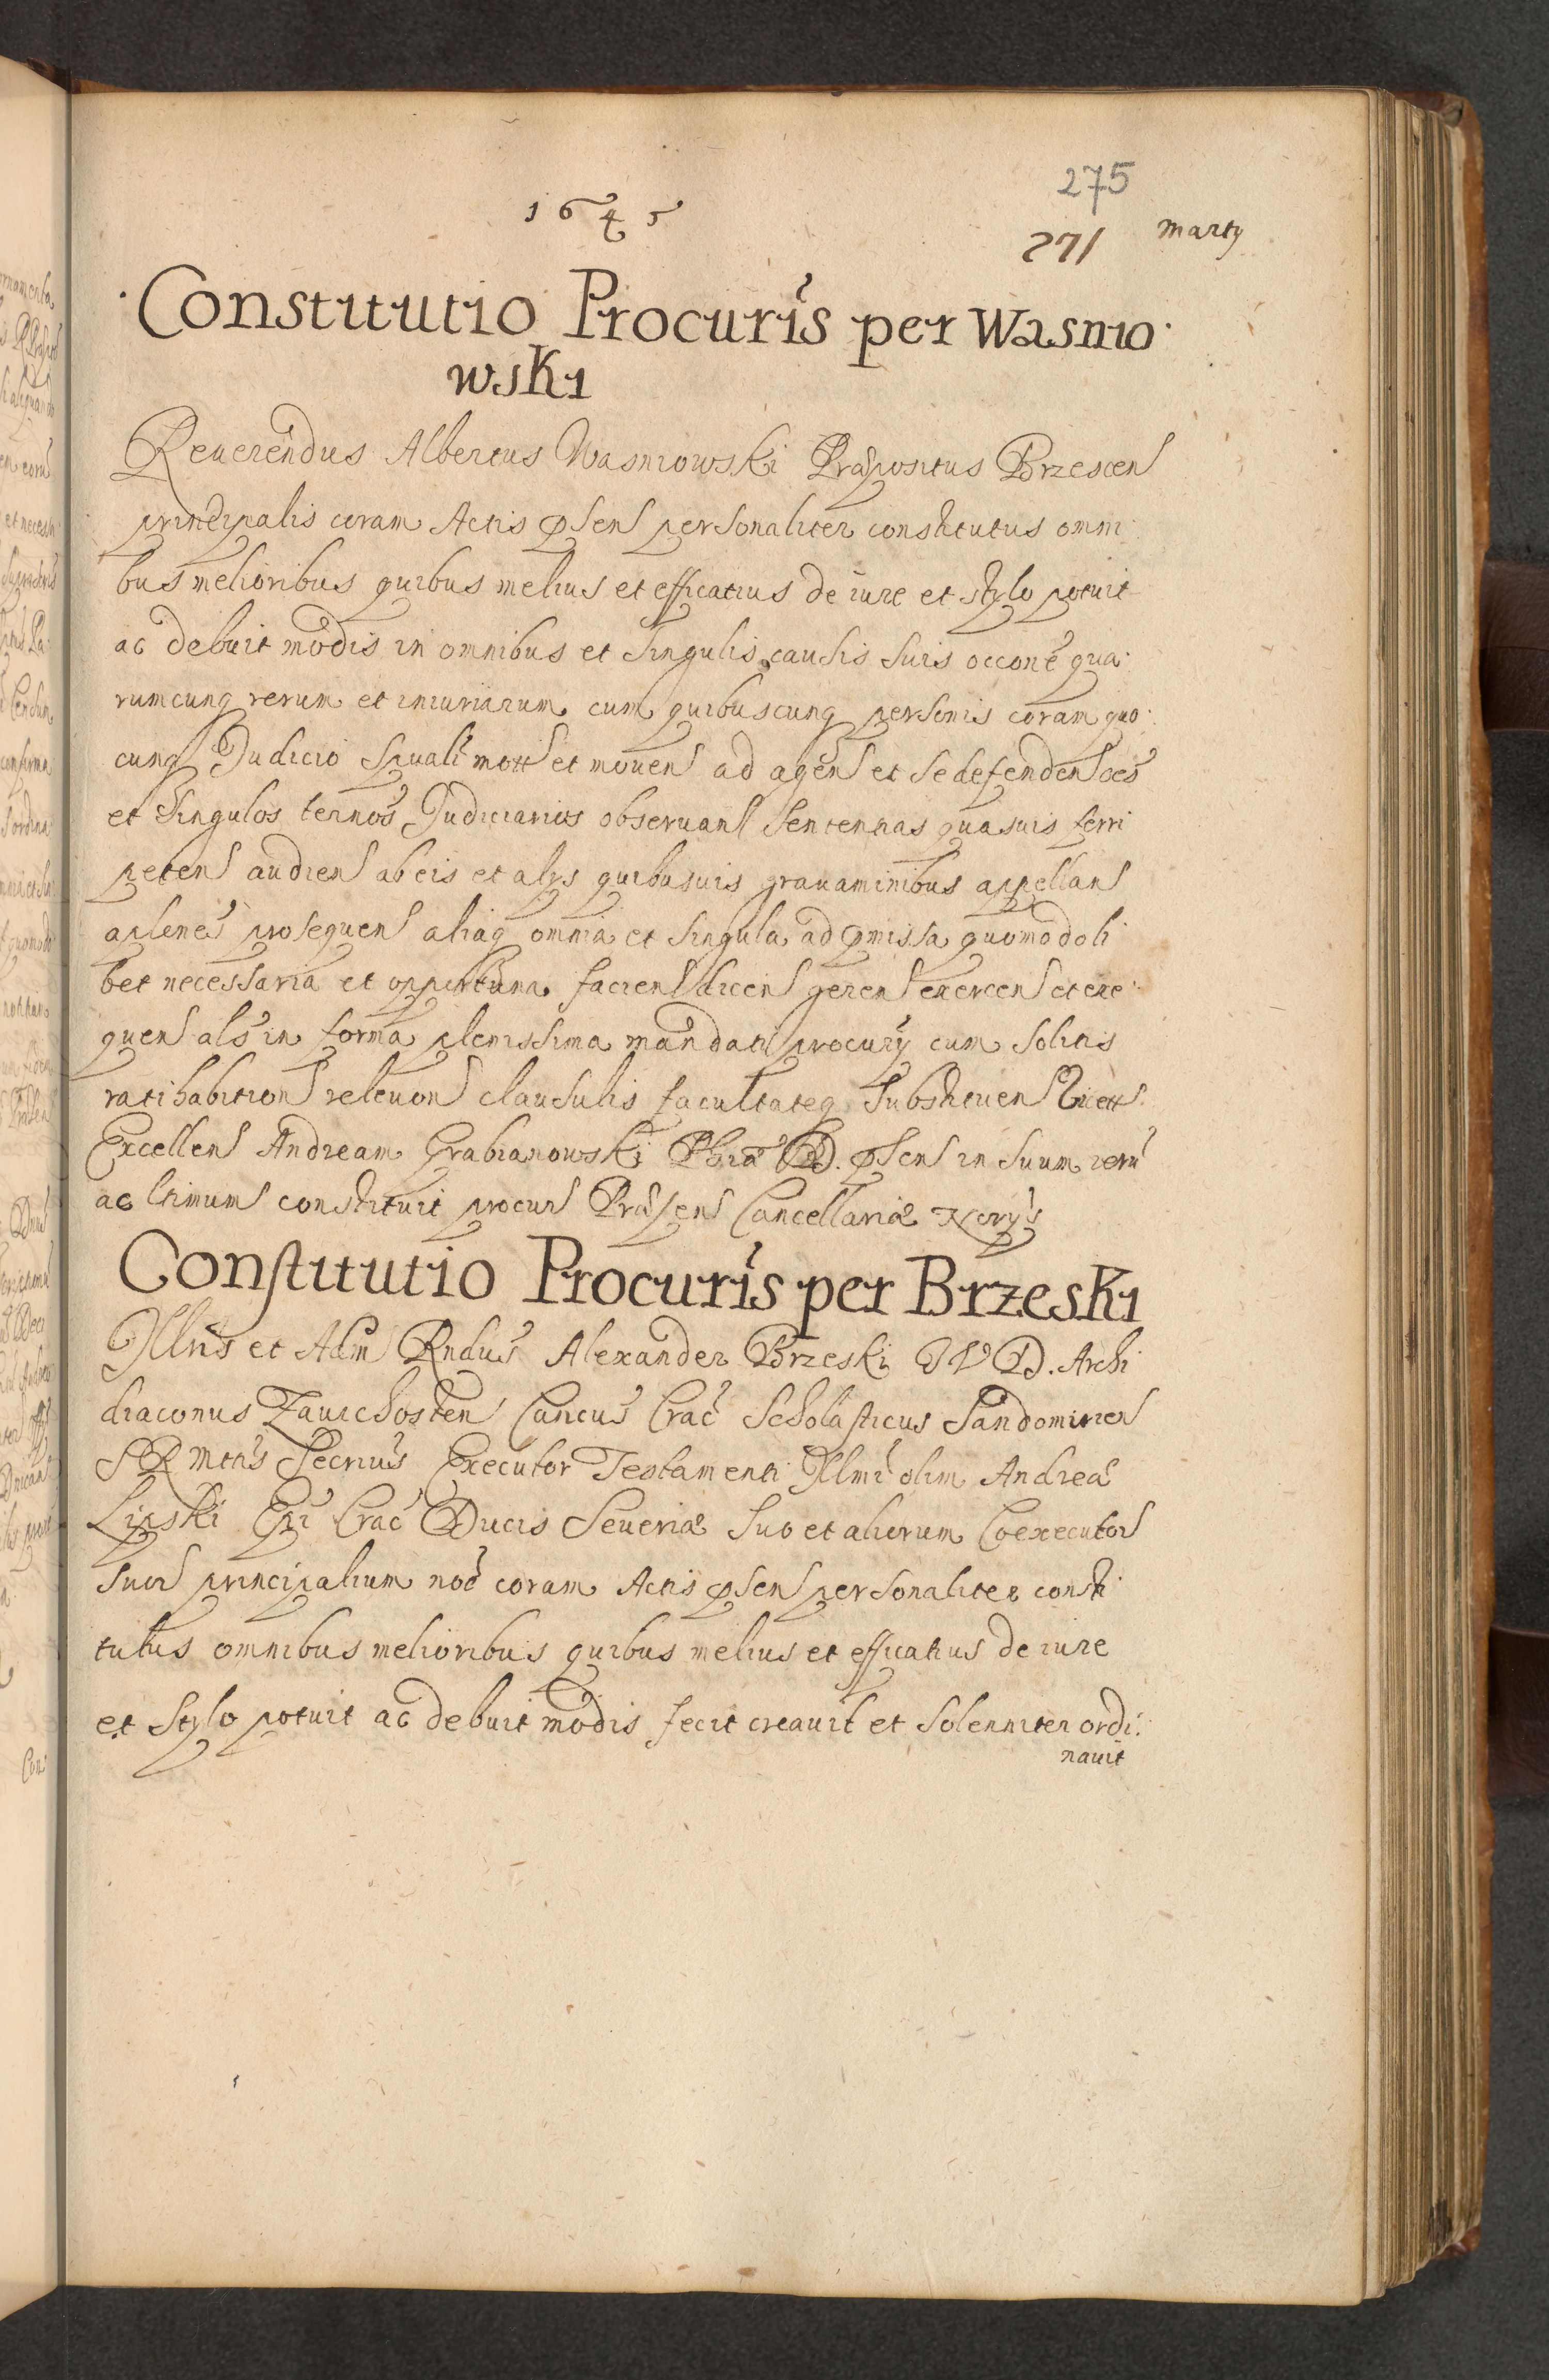 275
1645
271 Martÿ
Constitutio Procuris per Wasnio
wski
Reuerendus Albertus Wasniowski Præpositus Brzescen
principalis coram Actis psens personaliter constitutus omni
bus melioribus quibus melius et efficatius de iure et stylo potuit
ac debuit modis in omnibus et singulis causis suis occone qua
rumcunq rerum et iniuriarum cum quibuscunq personis coram quo
cunq Judicio Spuali mott et mouen ad agen et se defenden oes
et singulos ternos Judiciarios obseruan sententias quasuis ferri
peten audien ab eis et alÿs quibusuis grauaminibus appellan
aplone prosequen aliaq omnia et singula ad pmissa quomodoli
bet necessaria et opportuna facien dicen geren exercen et exe
quen als in forma plenissima mandati procurÿ cum solitis
ratihabition releuon clausulis facultateq substituen
Excellen Andream Grabianowski Phiæ D. psen in suum verū
ac ltimum constituit procur Præsen Cancellariæ Norÿs
Constitutio Procuris per Brzeski
Illris et Adm Rndus Alexander Brzeski JVD. Archi
diaconus Zauichosten Cancus Crac Scholasticus Sandomirien
SRMttis Secrius Executor Testamenti Illmi olim Andreæ
Lipski Epi Crac Ducis Seueriæ suo et aliorum Coexecutor
suor principalium noe coram Actis psens personaliter consti
tutus omnibus melioribus quibus melius et efficatius de iure
et stylo potuit ac debuit modis fecit creauit et solenniter ordi
nauit